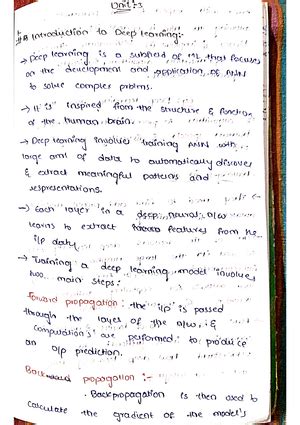 Unit-3
# Introduction to Deep learning:-
→ Deep learning is a subfield of ML that focuses
on the development and application of ANN
to solve complex prblms.
→ It is inspired from the structure & function
of the human brain.
→ Deep learning involves training ANN with
large amt of data to automatically discover
& extract meaningful patterns and
respresentations.
→ Each layer in a deep neural n/w
learns to extract features from the
i/p data.
→ Training a deep learning model involves
two main steps:
Forward propagation: the i/p is passed
through the layers of the n/w, &
computations are performed to produce
an o/p prediction.
Backward propagation :-
Backpropagation is then used to
calculate the gradient of the model's